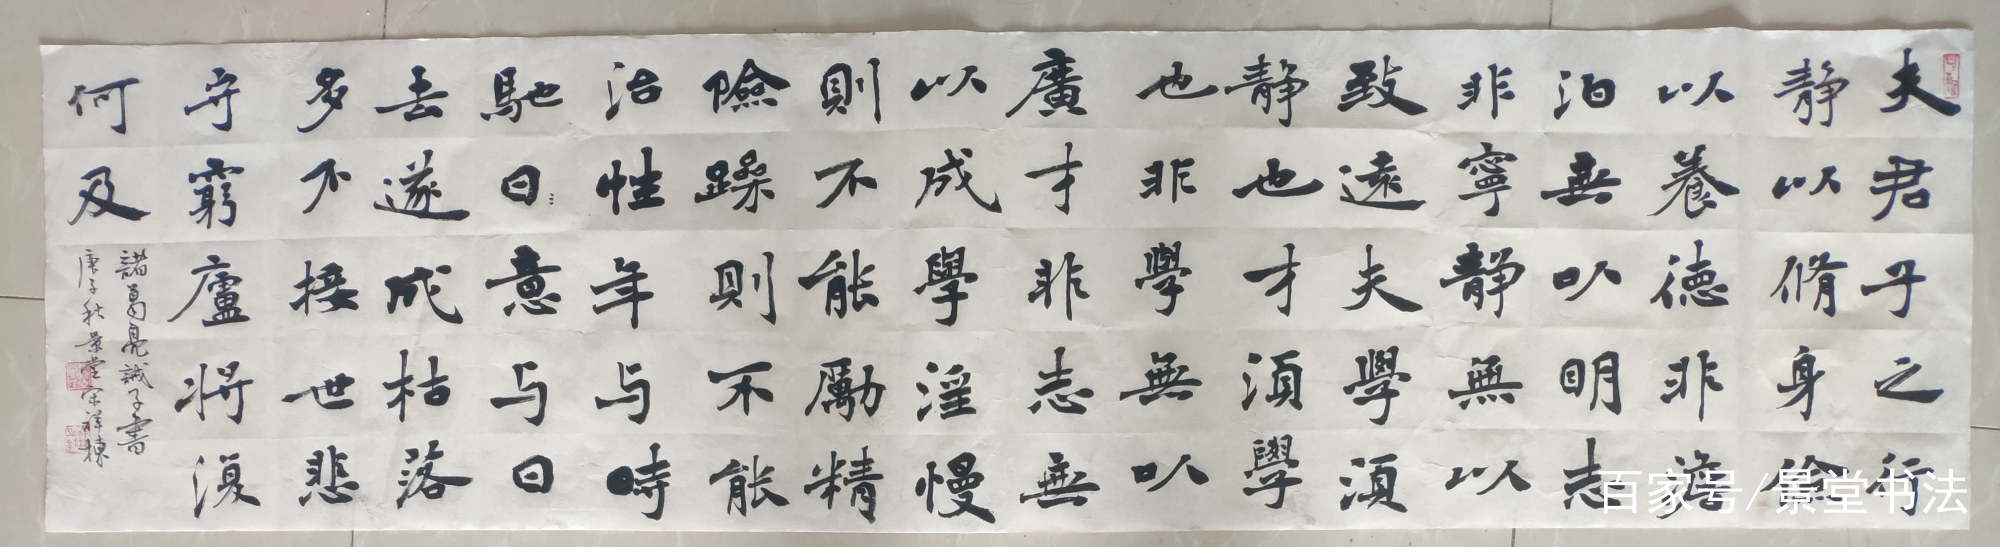 夫君子之行
静以脩身儉
以養德非澹
泊無以明志
非寧静無以
致遠夫學須
静也才須學
也非學無以
廣才非志無
以成學淫慢
則不能勵精
險躁則不能
治性年与時
馳日意与日
去遂成枯落
多不接世悲
守窮廬將復
何及
諸葛亮誡子書
庚子秋景堂宋祥棟
百家号/景堂书法